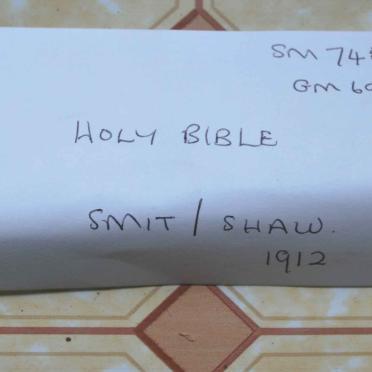 SM 74
GM 6
HOLY BIBLE
SMIT / SHAW.
1912